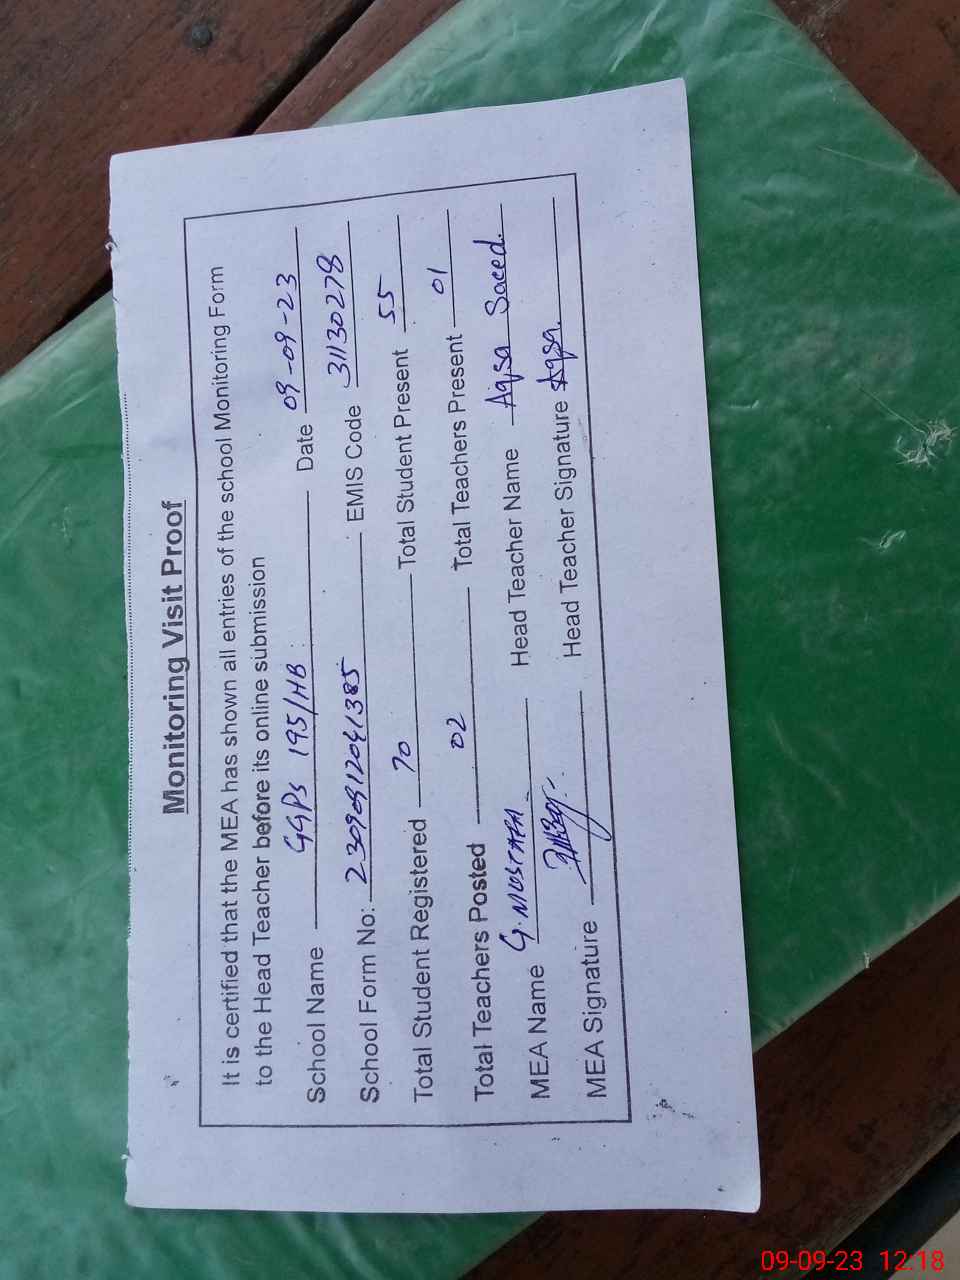 Monitoring Visit Proof
It is certified that the MEA has shown all entries of the school Monitoring Form
to the Head Teacher before its online submission
School Name GGPS 195/HB Date 09-09-23
School Form No: 23090912041385 EMIS Code 31130278
Total Student Registered 70 Total Student Present 55
Total Teachers Posted 02 Total Teachers Present 01
MEA Name G. MUSTAFA Head Teacher Name Aqsa Saeed.
MEA Signature Head Teacher Signature Aqsa.
09-09-23 12:18